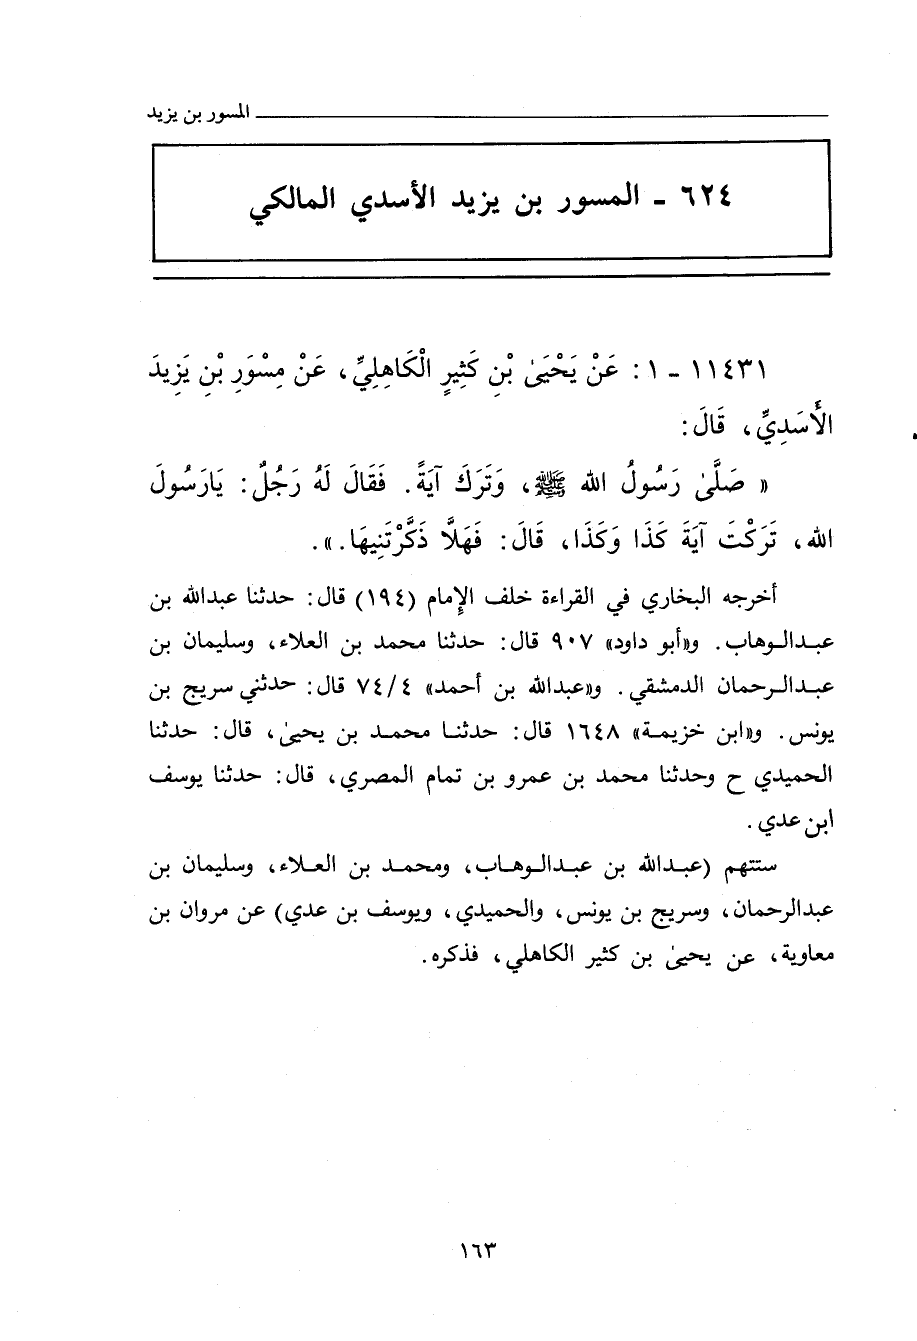 المسور بن يزيد
٦٢٤ - المسور بن يزيد الأسدي المالكي
١١٤٣١ - ١ : عَنْ يَحْيَىٰ بْنِ كَثِيرٍ الْكَاهِلِيِّ، عَنْ مِسْوَرِ بْنِ يَزِيدَ
الأَسَدِيِّ، قَالَ:
« صَلَّىٰ رَسُولُ الله ﷺ، وَتَرَكَ آيَةً. فَقَالَ لَهُ رَجُلٌ: يَارَسُولَ
الله، تَرَكْتَ آيَةَ كَذَا وَكَذَا، قَالَ: فَهَلَّا ذَكَّرْتَنِيهَا.».
أخرجه البخاري في القراءة خلف الإمام (١٩٤) قال: حدثنا عبدالله بن
عبدالوهاب. و«أبو داود» ٩٠٧ قال: حدثنا محمد بن العلاء، وسليمان بن
عبدالرحمان الدمشقي. و«عبدالله بن أحمد» ٧٤/٤ قال: حدثني سريج بن
يونس. و«ابن خزيمة» ١٦٤٨ قال: حدثنا محمد بن يحيىٰ، قال: حدثنا
الحميدي ح وحدثنا محمد بن عمرو بن تمام المصري، قال: حدثنا يوسف
ابن عدي.
ستتهم (عبدالله بن عبدالوهاب، ومحمد بن العلاء، وسليمان بن
عبدالرحمان، وسريج بن يونس، والحميدي، ويوسف بن عدي) عن مروان بن
معاوية، عن يحيىٰ بن كثير الكاهلي، فذكره.
١٦٣